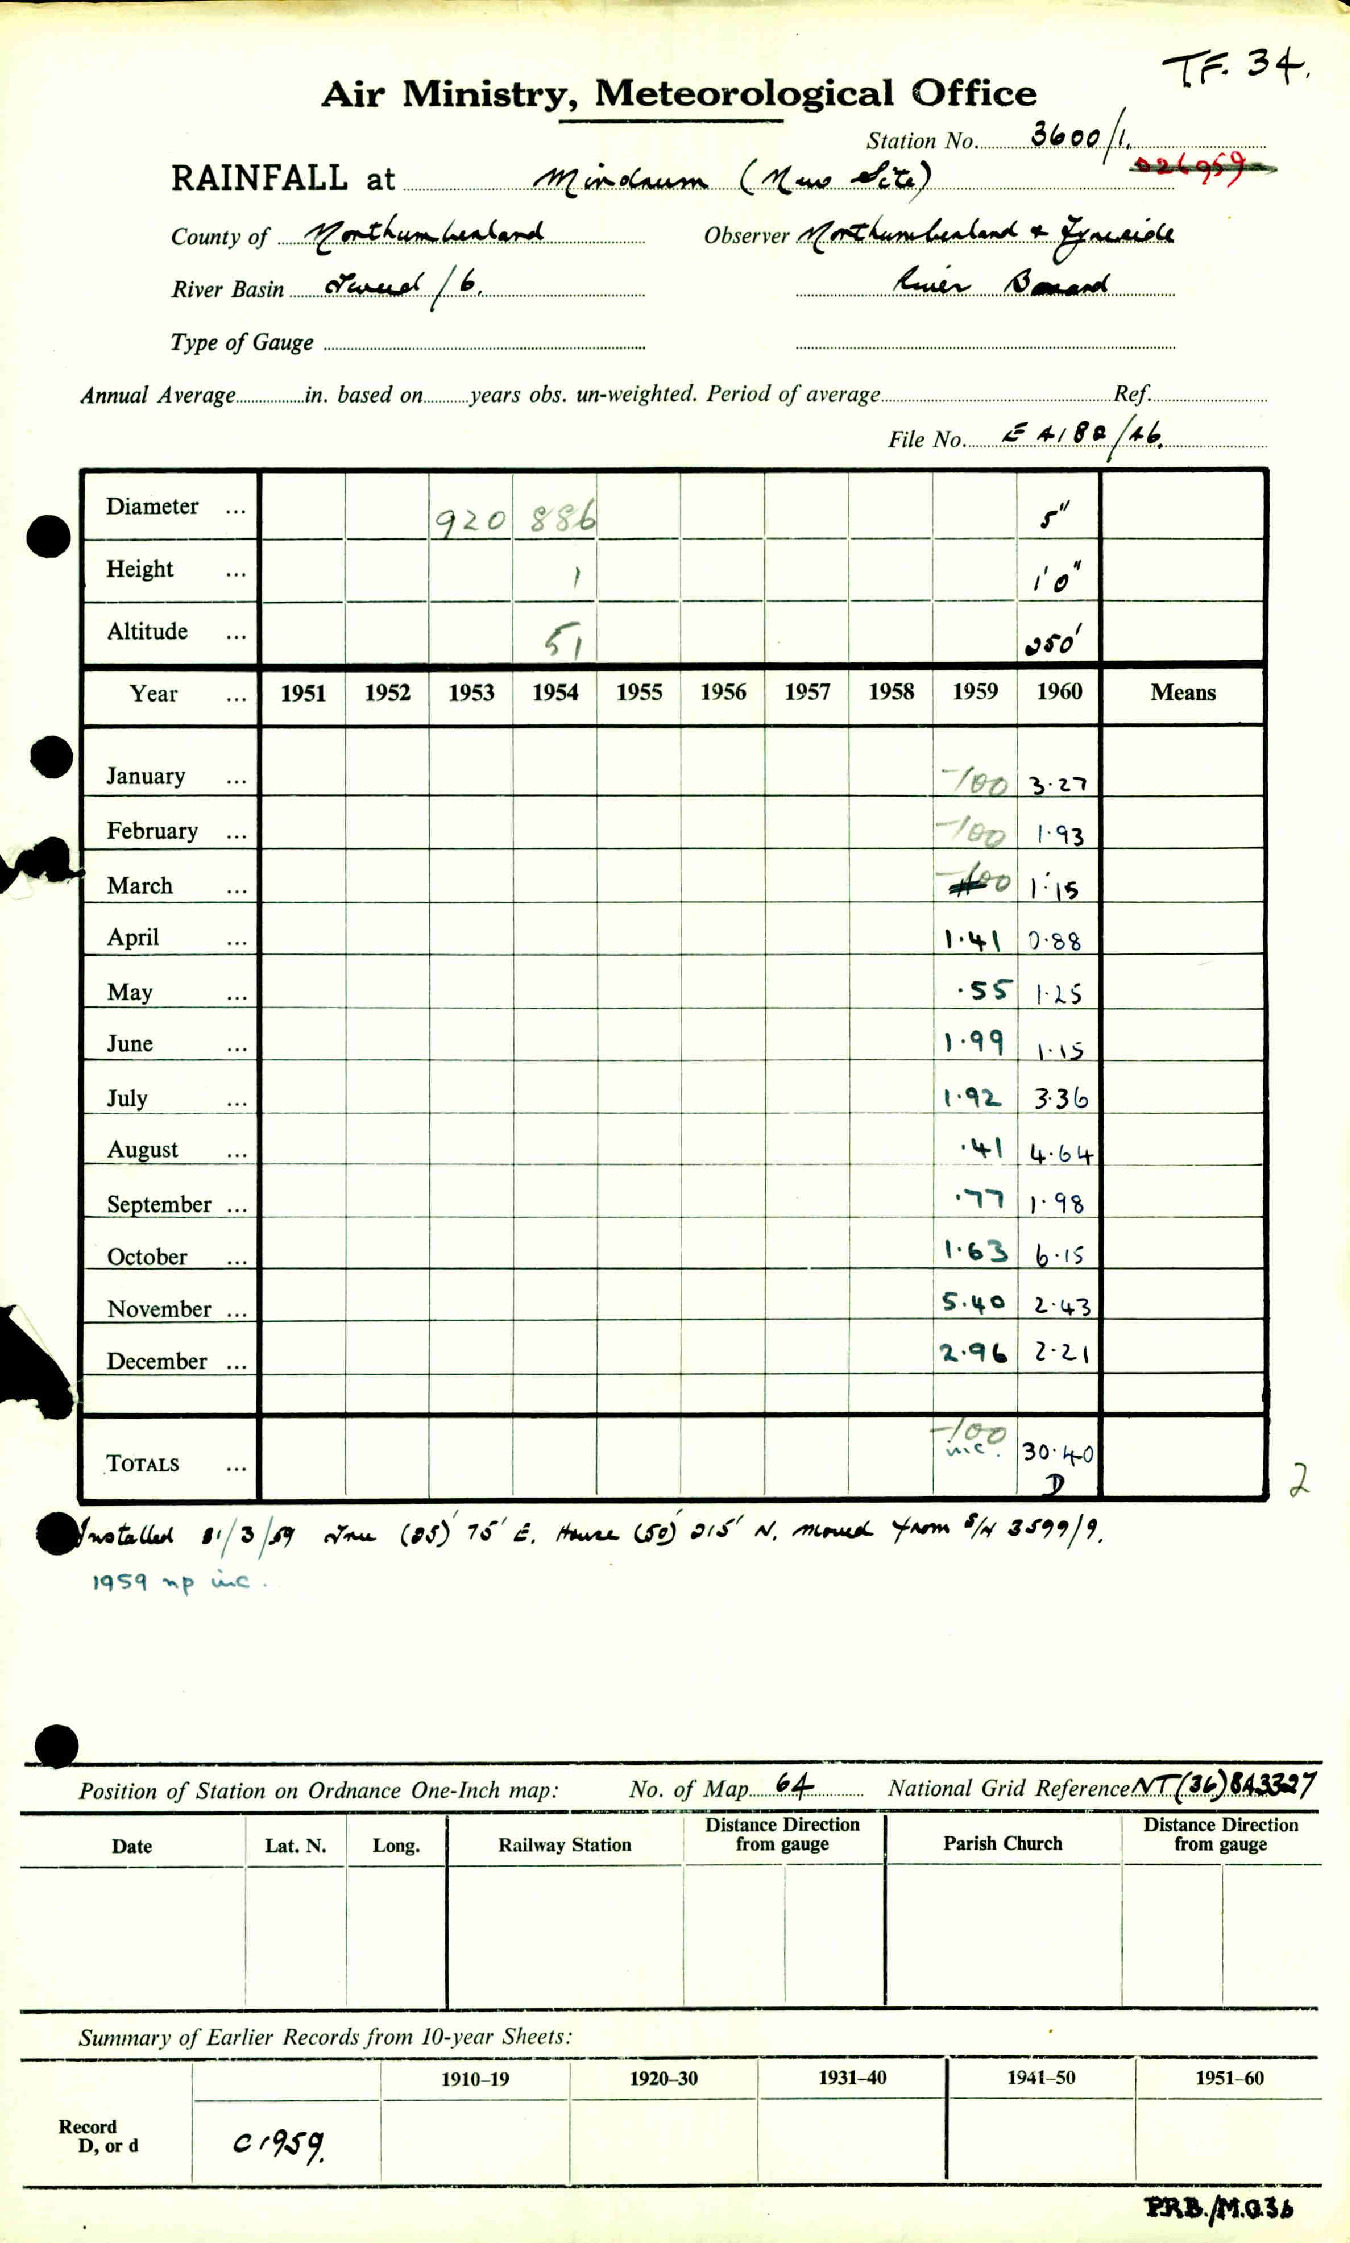 T.F. 34.
Air Ministry, Meteorological Office
Station No. 3600/1.
026959
RAINFALL at Mindrum (New Site)
County of Northumberland Observer Northumberland & Tyneside
River Basin Tweed /6. River Board
Type of Gauge
Annual Average in. based on years obs. un-weighted. Period of average Ref.
File No.
Diameter ... 920 886 5"
Height ... 1 1'0"
Altitude ... 51 250'
Year ... 1951 1952 1953 1954 1955 1956 1957 1958 1959 1960 Means
January ... -100 3·27
February ... -100 1·93
March ... -100 1·15
April ... 1·41 0·88
May ... ·55 1·25
June ... 1·99 1·15
July ... 1·92 3·36
August ... ·41 4·64
September ... ·77 1·98
October ... 1·63 6·15
November ... 5·40 2·43
December ... 2·96 2·21
TOTALS ... -100 inc. 30·40
D
2
Installed 31/3/59 Tree (25)' 75' E. House (50)' 215' N. Moved from S/N 3599/9.
1959 np inc.
Position of Station on Ordnance One-Inch map: No. of Map 64 National Grid Reference NT(36)843327
Date Lat. N. Long. Railway Station Distance Direction from gauge Parish Church Distance Direction from gauge
Summary of Earlier Records from 10-year Sheets:
1910–19 1920–30 1931–40 1941–50 1951–60
Record
D, or d C1959.
P.R.B./M.O.36